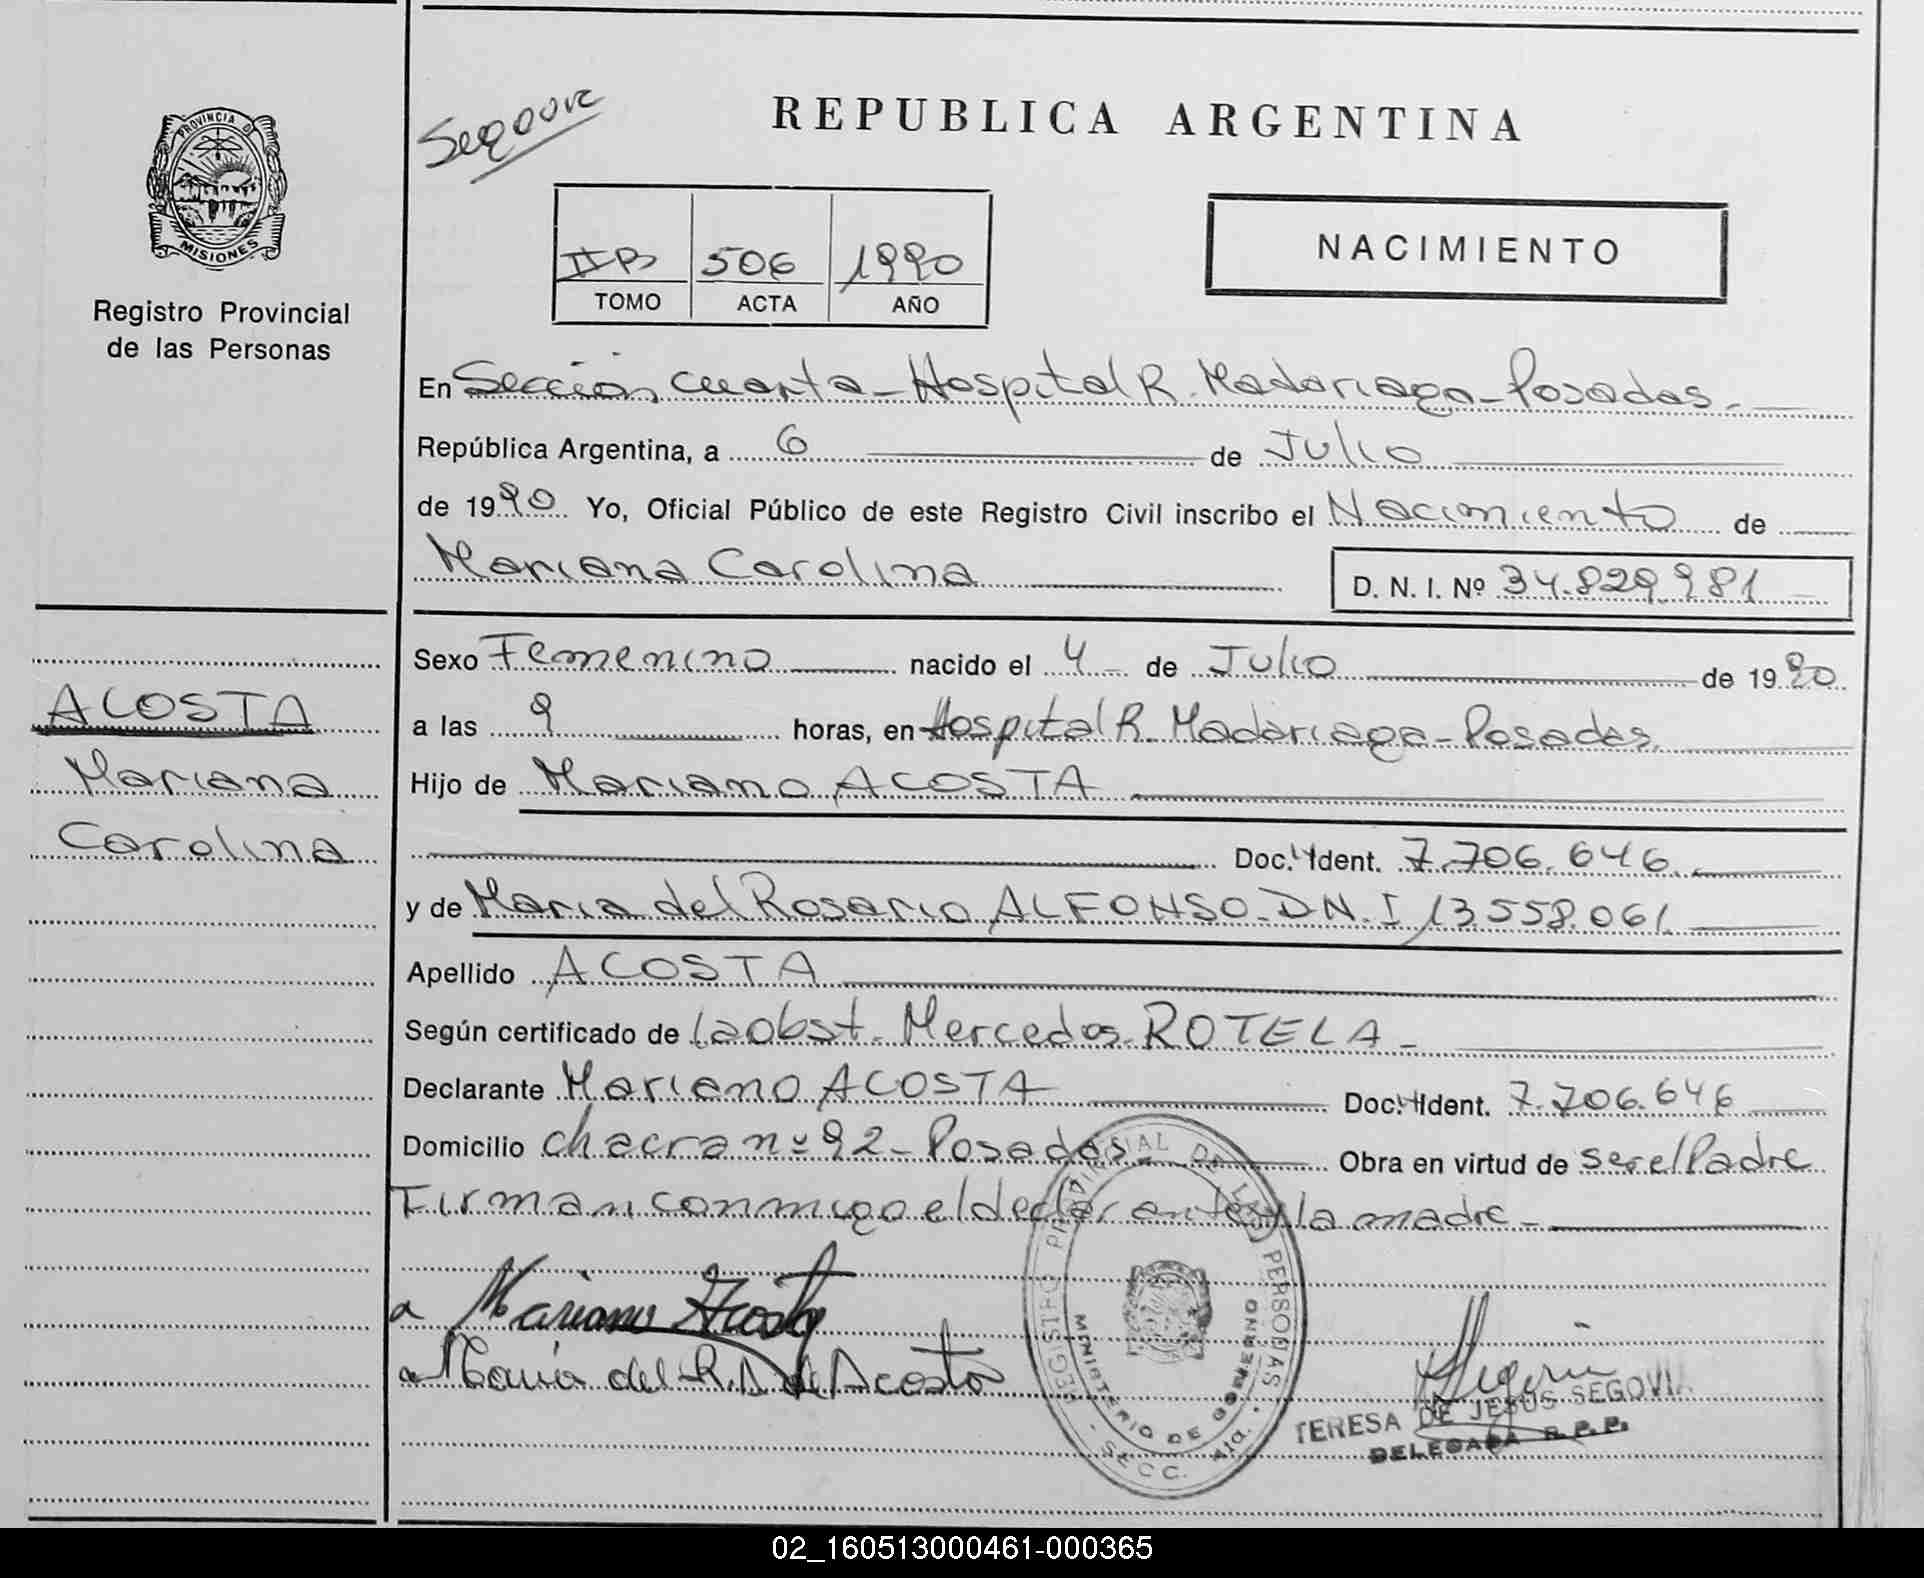 PROVINCIA DE
MISIONES
Registro Provincial
de las Personas
ACOSTA
Mariana
Carolina
Segovia
REPUBLICA ARGENTINA
II B 506 1990
TOMO ACTA AÑO
NACIMIENTO
En Sección cuarta - Hospital R. Madariaga - Posadas.
República Argentina, a 6 de Julio
de 1990 Yo, Oficial Público de este Registro Civil inscribo el Nacimiento de
Mariana Carolina
D. N. I. Nº 34.829.981
Sexo Femenino nacido el 4 de Julio de 1990
a las 9 horas, en Hospital R. Madariaga - Posadas.
Hijo de Mariano ACOSTA
Doc. Ident. 7.706.646.
y de Maria del Rosario ALFONSO - D.N.I 13.558.061.
Apellido ACOSTA
Según certificado de la obst. Mercedes ROTELA -
Declarante Mariano ACOSTA Doc. Ident. 7.706.646
Domicilio chacra nº 92 - Posadas Obra en virtud de ser el Padre
Firman conmigo el declarante y la madre -
a Mariano Acosta
a Maria del R. A de Acosta
REGISTRO PROVINCIAL DE LAS PERSONAS
MINISTERIO DE GOBIERNO
- SECC. 4ta. -
Segovia
TERESA DE JESUS SEGOVIA
DELEGADA R.P.P.
02_160513000461-000365